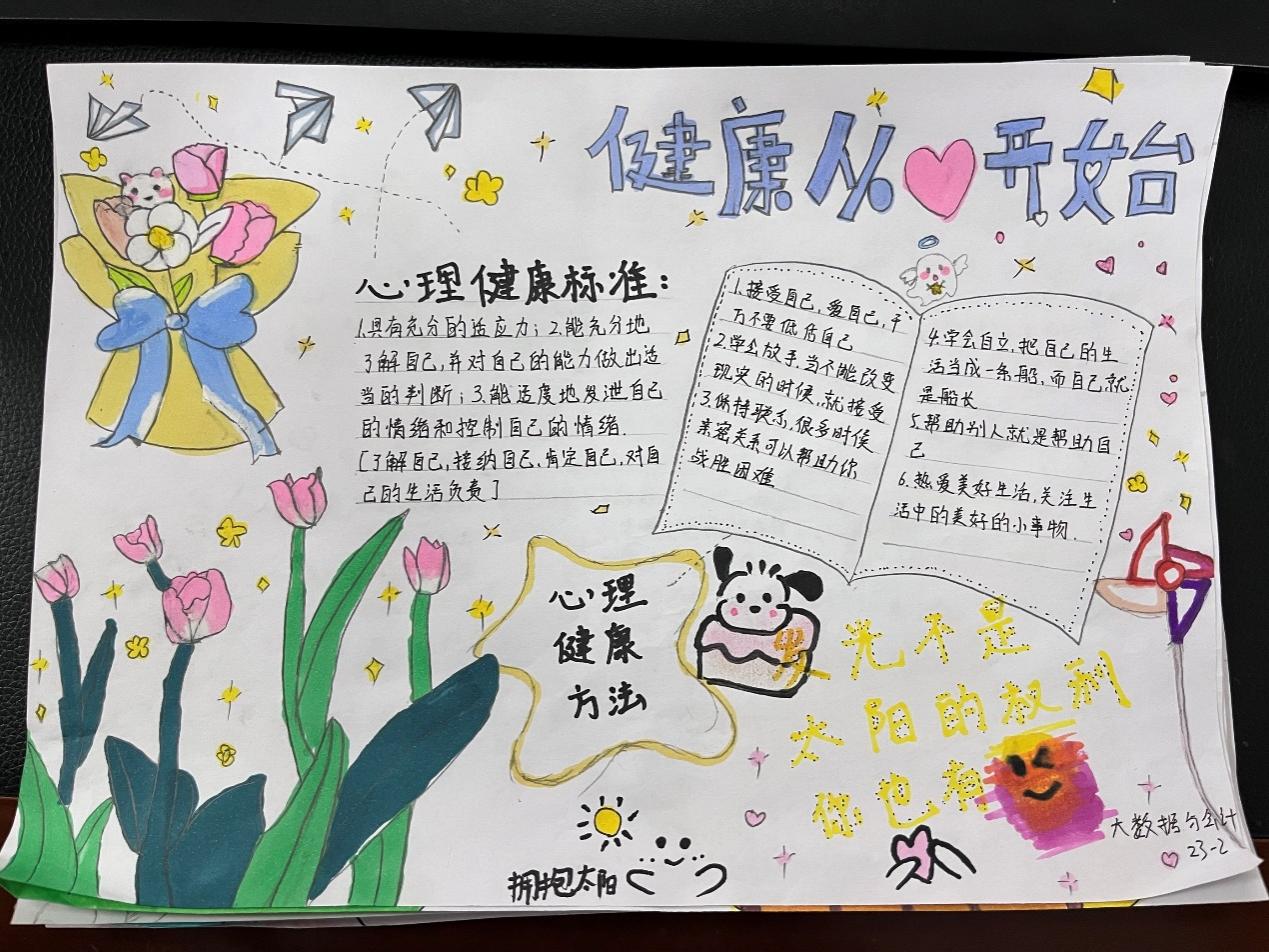 健康从开始
心理健康标准：
1.具有充分的适应力；2.能充分地
了解自己,并对自己的能力做出适
当的判断；3.能适度地发泄自己
的情绪和控制自己的情绪.
[了解自己,接纳自己,肯定自己,对自
己的生活负责]
1.接受自己,爱自己,千
万不要低估自己
2.学会放手,当不能改变
现实的时候,就接受
3.保持联系,很多时候
亲密关系可以帮助你
战胜困难
4.学会自立,把自己的生
活当成一条船,而自己就
是船长
5.帮助别人就是帮助自
己
6.热爱美好生活,关注生
活中的美好的小事物.
心理
健康
方法
发光不是
太阳的权利
你也有
拥抱太阳
大数据与会计
23-2